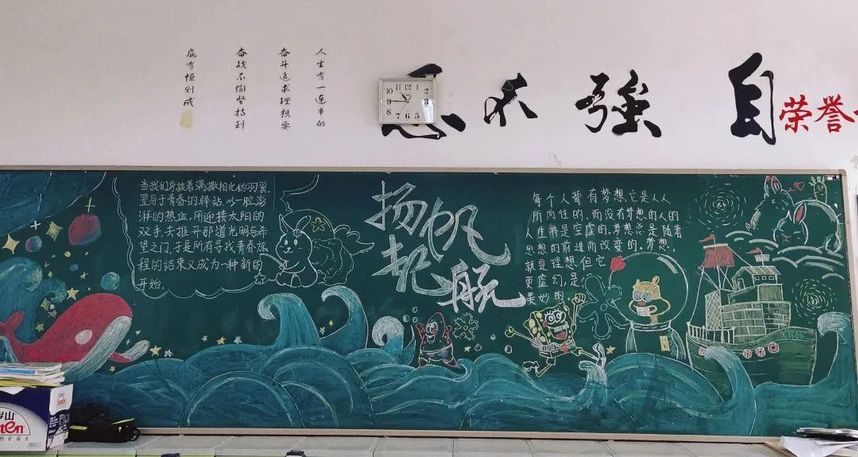 荣誉
自強不息
人生有一连串的
奋斗追求理想要
奋战不懈坚持到
底有恒则成
当我们身披着满撒阳光的羽翼
置身于青春的驿站,以一腔澎
湃的热血,用迎接太阳的
双手去推开那道光明与希
望之门,于是所有寻找青春旅
程的结束又成为一种新的
开始.
扬帆
起航
每个人背有梦想,它是人人
所内往的,而没有梦想的人的
人生将是空虚的,梦想总是随着
思想的前进而改变的,梦想,
就是理想,但它
更虚幻,是
美妙的